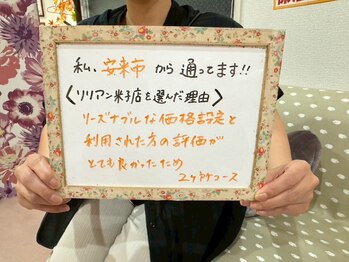 私、安来市から通ってます!!
〈リリアン米子店を選んだ理由〉
リーズナブルな価格設定と
利用された方の評価が
とても良かったため